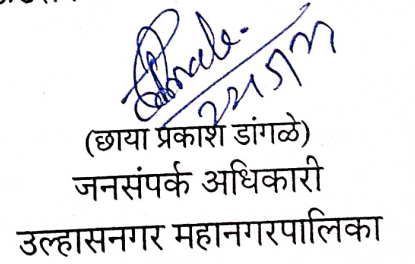 (छाया प्रकाश डांगळे)
जनसंपर्क अधिकारी
उल्हासनगर महानगरपालिका